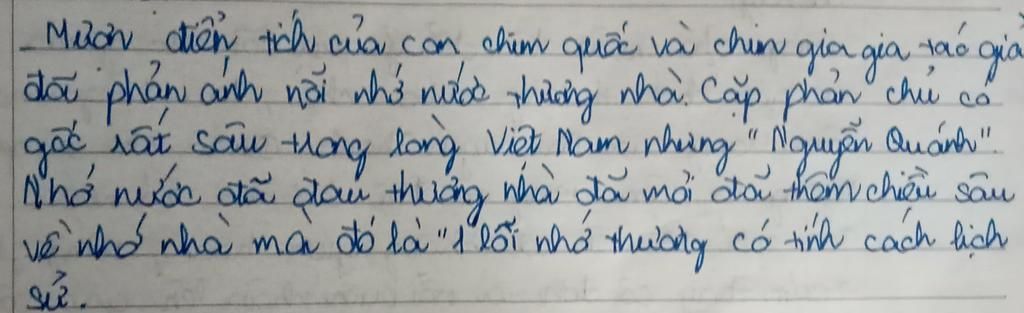 _ Mượn điển tích của con chim quốc và chim gia gia tác giả
đã phản ánh nỗi nhớ nước thương nhà. Cặp phản chủ có
gốc rất sâu trong lòng Việt Nam nhưng "Nguyễn Quánh".
Nhớ nước đã đau thương nhà đã mỏi đã thêm chiều sâu
về nhớ nhà mà đó là "1 lối nhớ thương có tính cách lịch
sử.